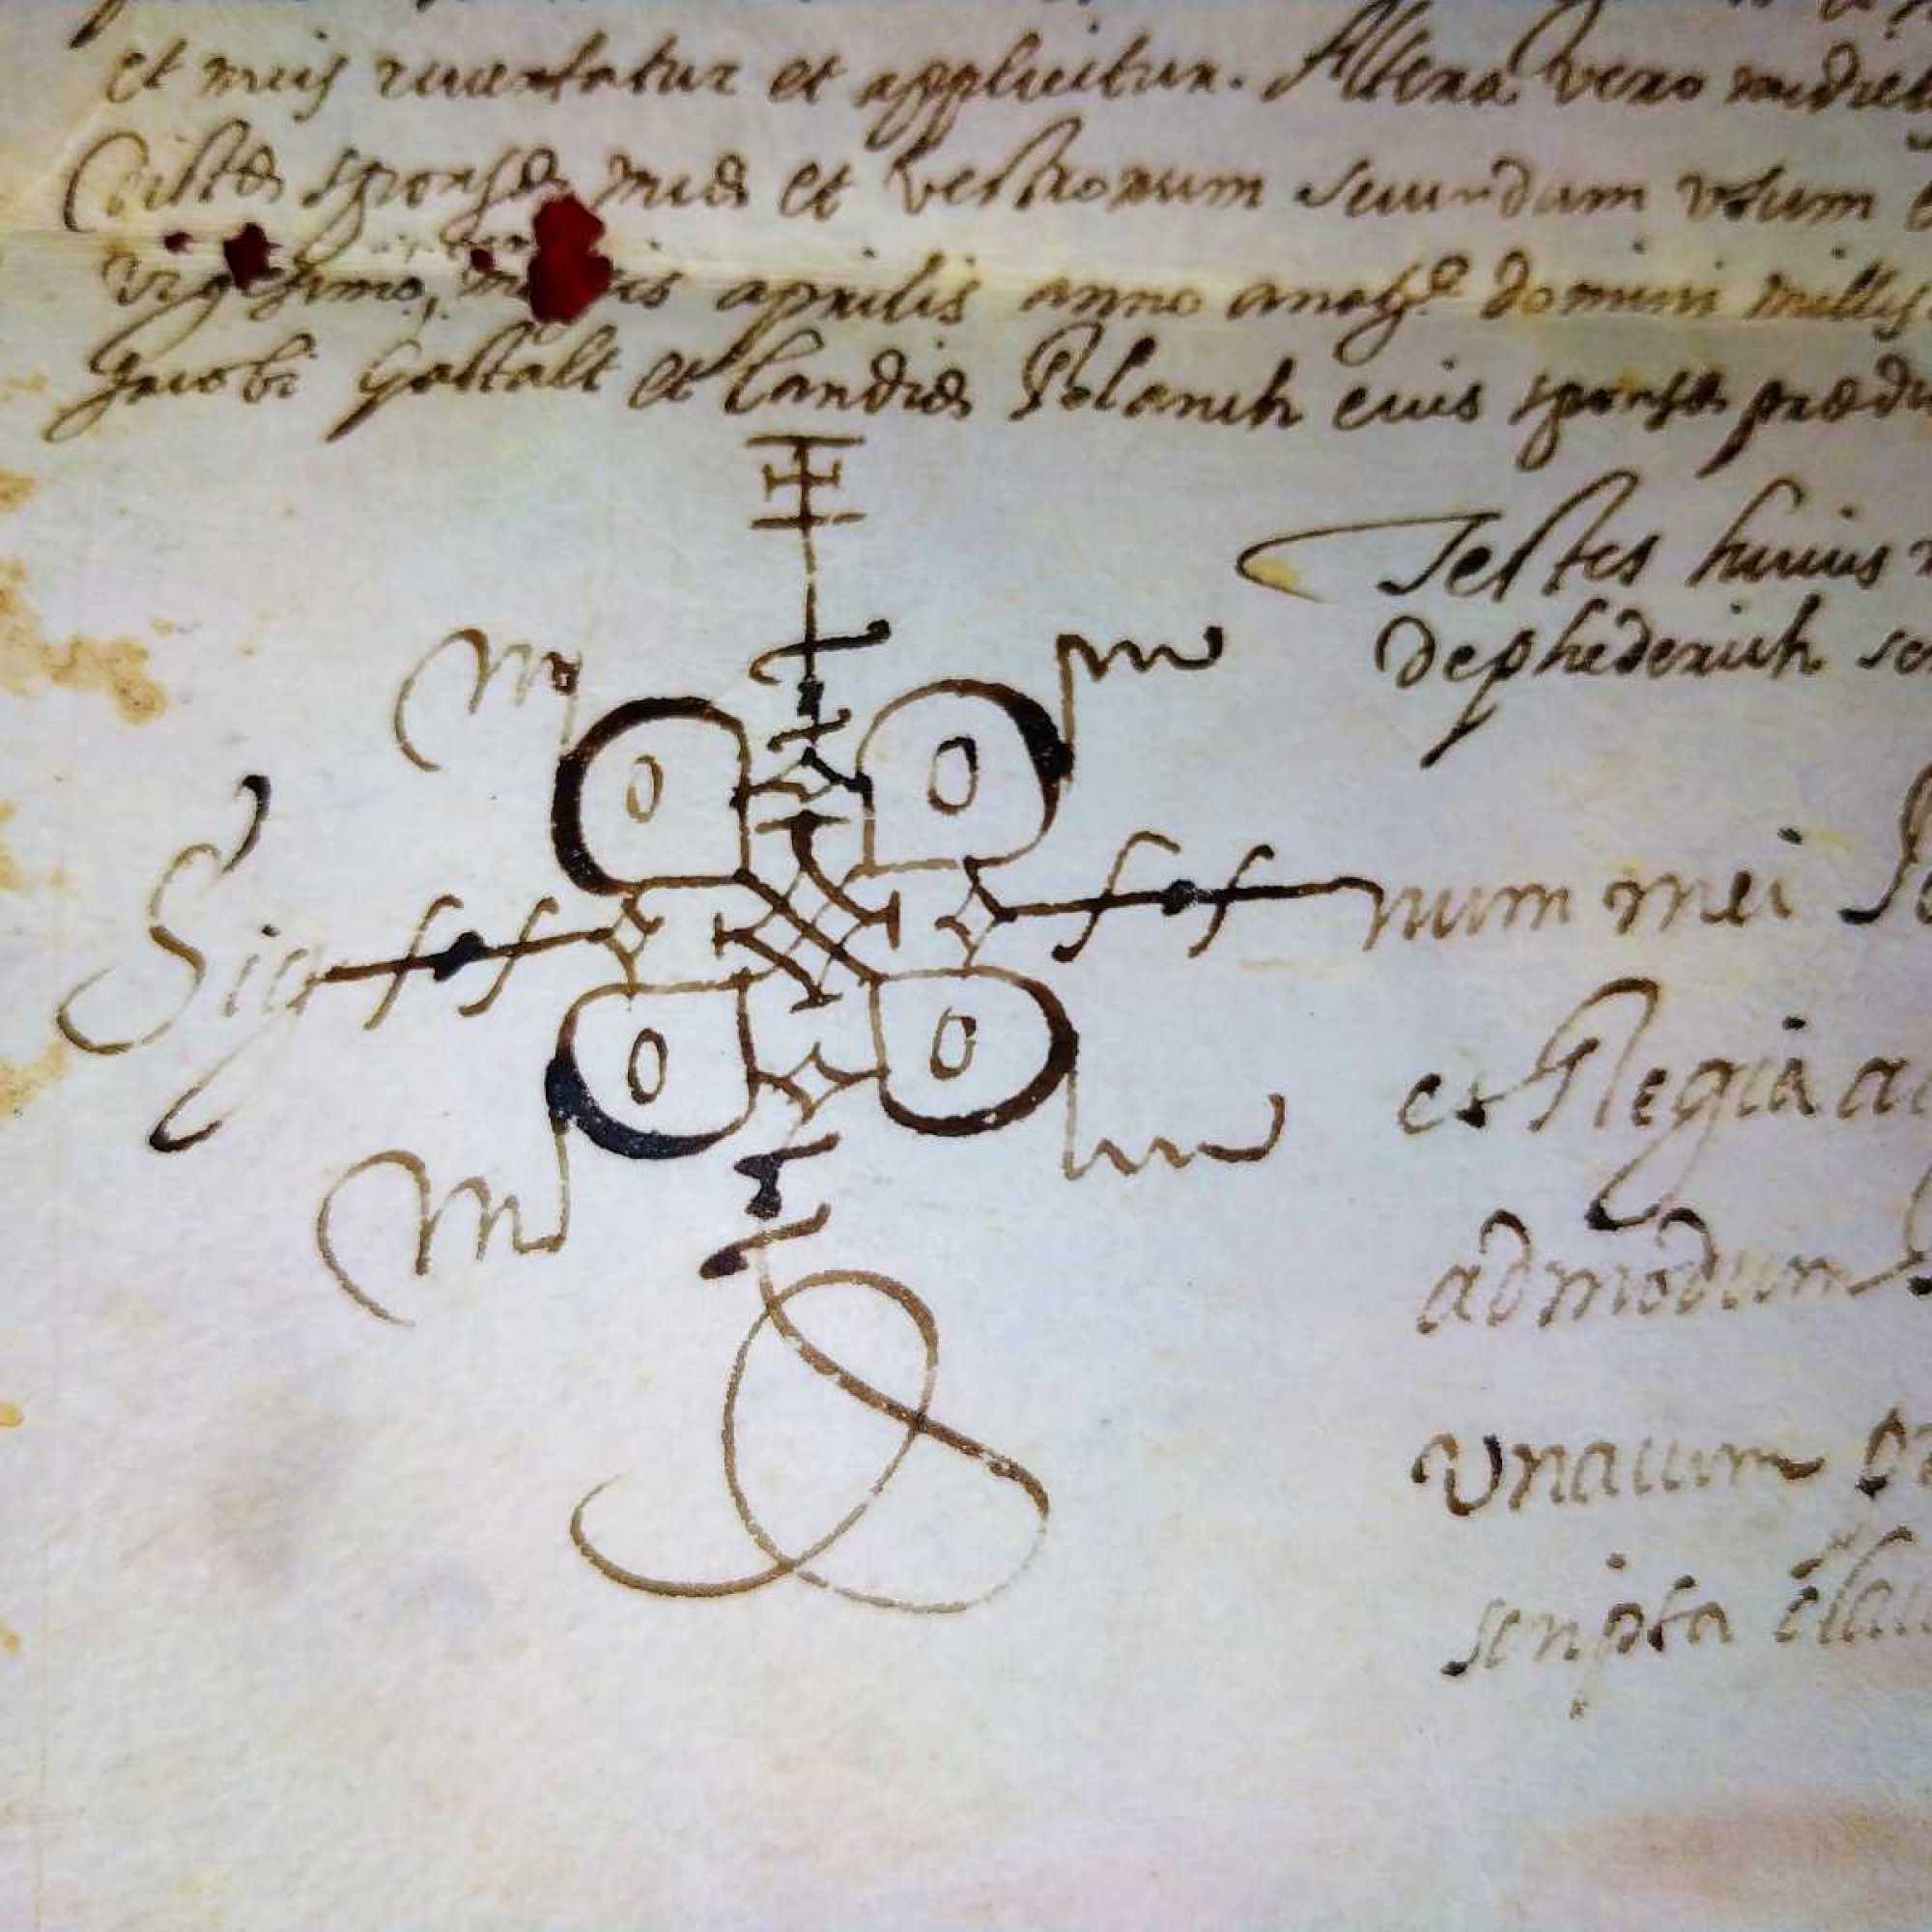 et meis revertatur et applicetur. Altera vero mediet
Dictæ sponsæ meæ et vestrorum secundum votum
vigesimo, aprilis anno anatte domini milles
Jacobi Gastalt et Candiæ Polanch eius sponsæ prædi
Testes huius
Dephederich
Sig num mei
et Regia a
admodum
Unacum
scripta clau